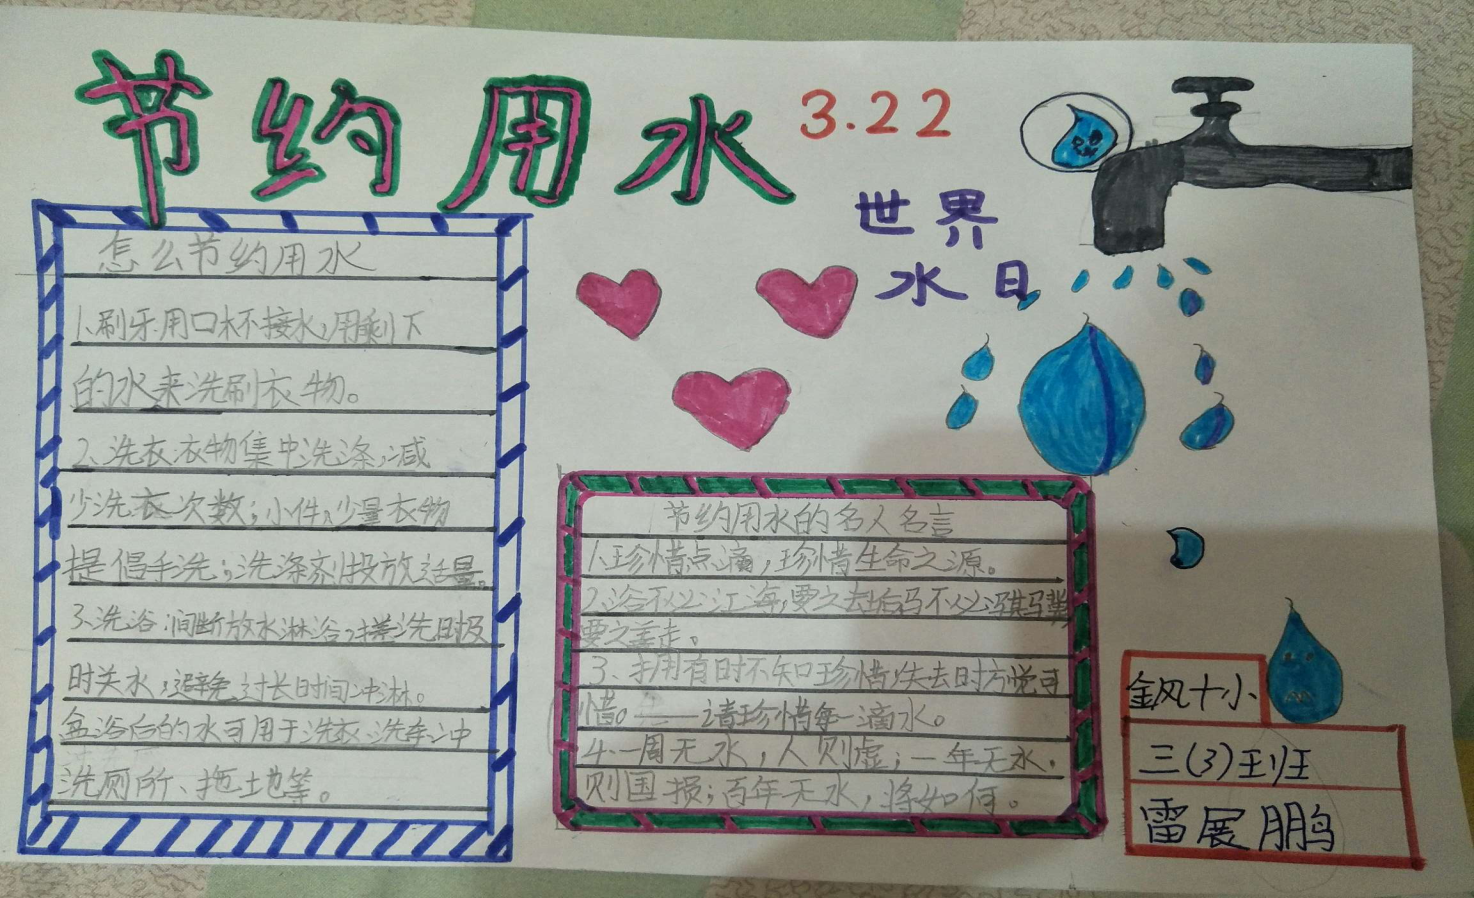 节约用水
3.22
世界
水日
怎么节约用水
1、刷牙:用口杯接水,用剩下
的水来洗刷衣物。
2、洗衣:衣物集中洗涤,减
少洗衣次数;小件、少量衣物
提倡手洗;洗涤剂投放适量。
3、洗浴:间断放水淋浴,搓洗时及
时关水,避免过长时间冲淋。
浴后的水可用于洗衣、洗车、冲
洗厕所、拖地等。
节约用水的名人名言
1、珍惜点滴,珍惜生命之源。
2、浴不必江海,要之去垢;马不必骐骥,
要之善走。
3、拥有时不知珍惜,失去时方觉可
惜。——请珍惜每一滴水。
4、一周无水,人则虚;一年无水,
则国损;百年无水,将如何。
金风十小
三(3)班
雷展鹏